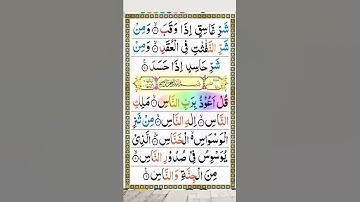 شَرِّ غَاسِقٍ اِذَا وَقَبَ ۙ وَمِنْ
شَرِّ النَّفّٰثٰتِ فِی الْعُقَدِ ۙ وَمِنْ
شَرِّ حَاسِدٍ اِذَا حَسَدَ
قُلْ اَعُوْذُ بِرَبِّ النَّاسِ ۙ مَلِكِ
النَّاسِ ۙ اِلٰهِ النَّاسِ ۙ مِنْ شَرِّ
الْوَسْوَاسِ ۙ الْخَنَّاسِ ۙ الَّذِیْ
یُوَسْوِسُ فِیْ صُدُوْرِ النَّاسِ ۙ
مِنَ الْجِنَّةِ وَالنَّاسِ